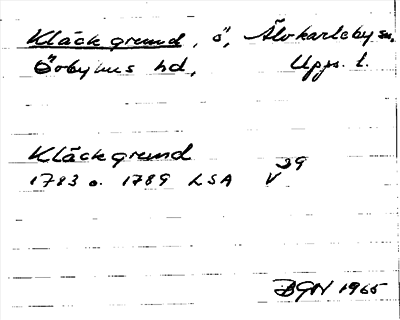 Kläckgrund, ö, Älvkarleby sn,
Örbyhus hd, Upps. l.
Kläckgrund
1783 o. 1789 LSA V 39
BGN 1965